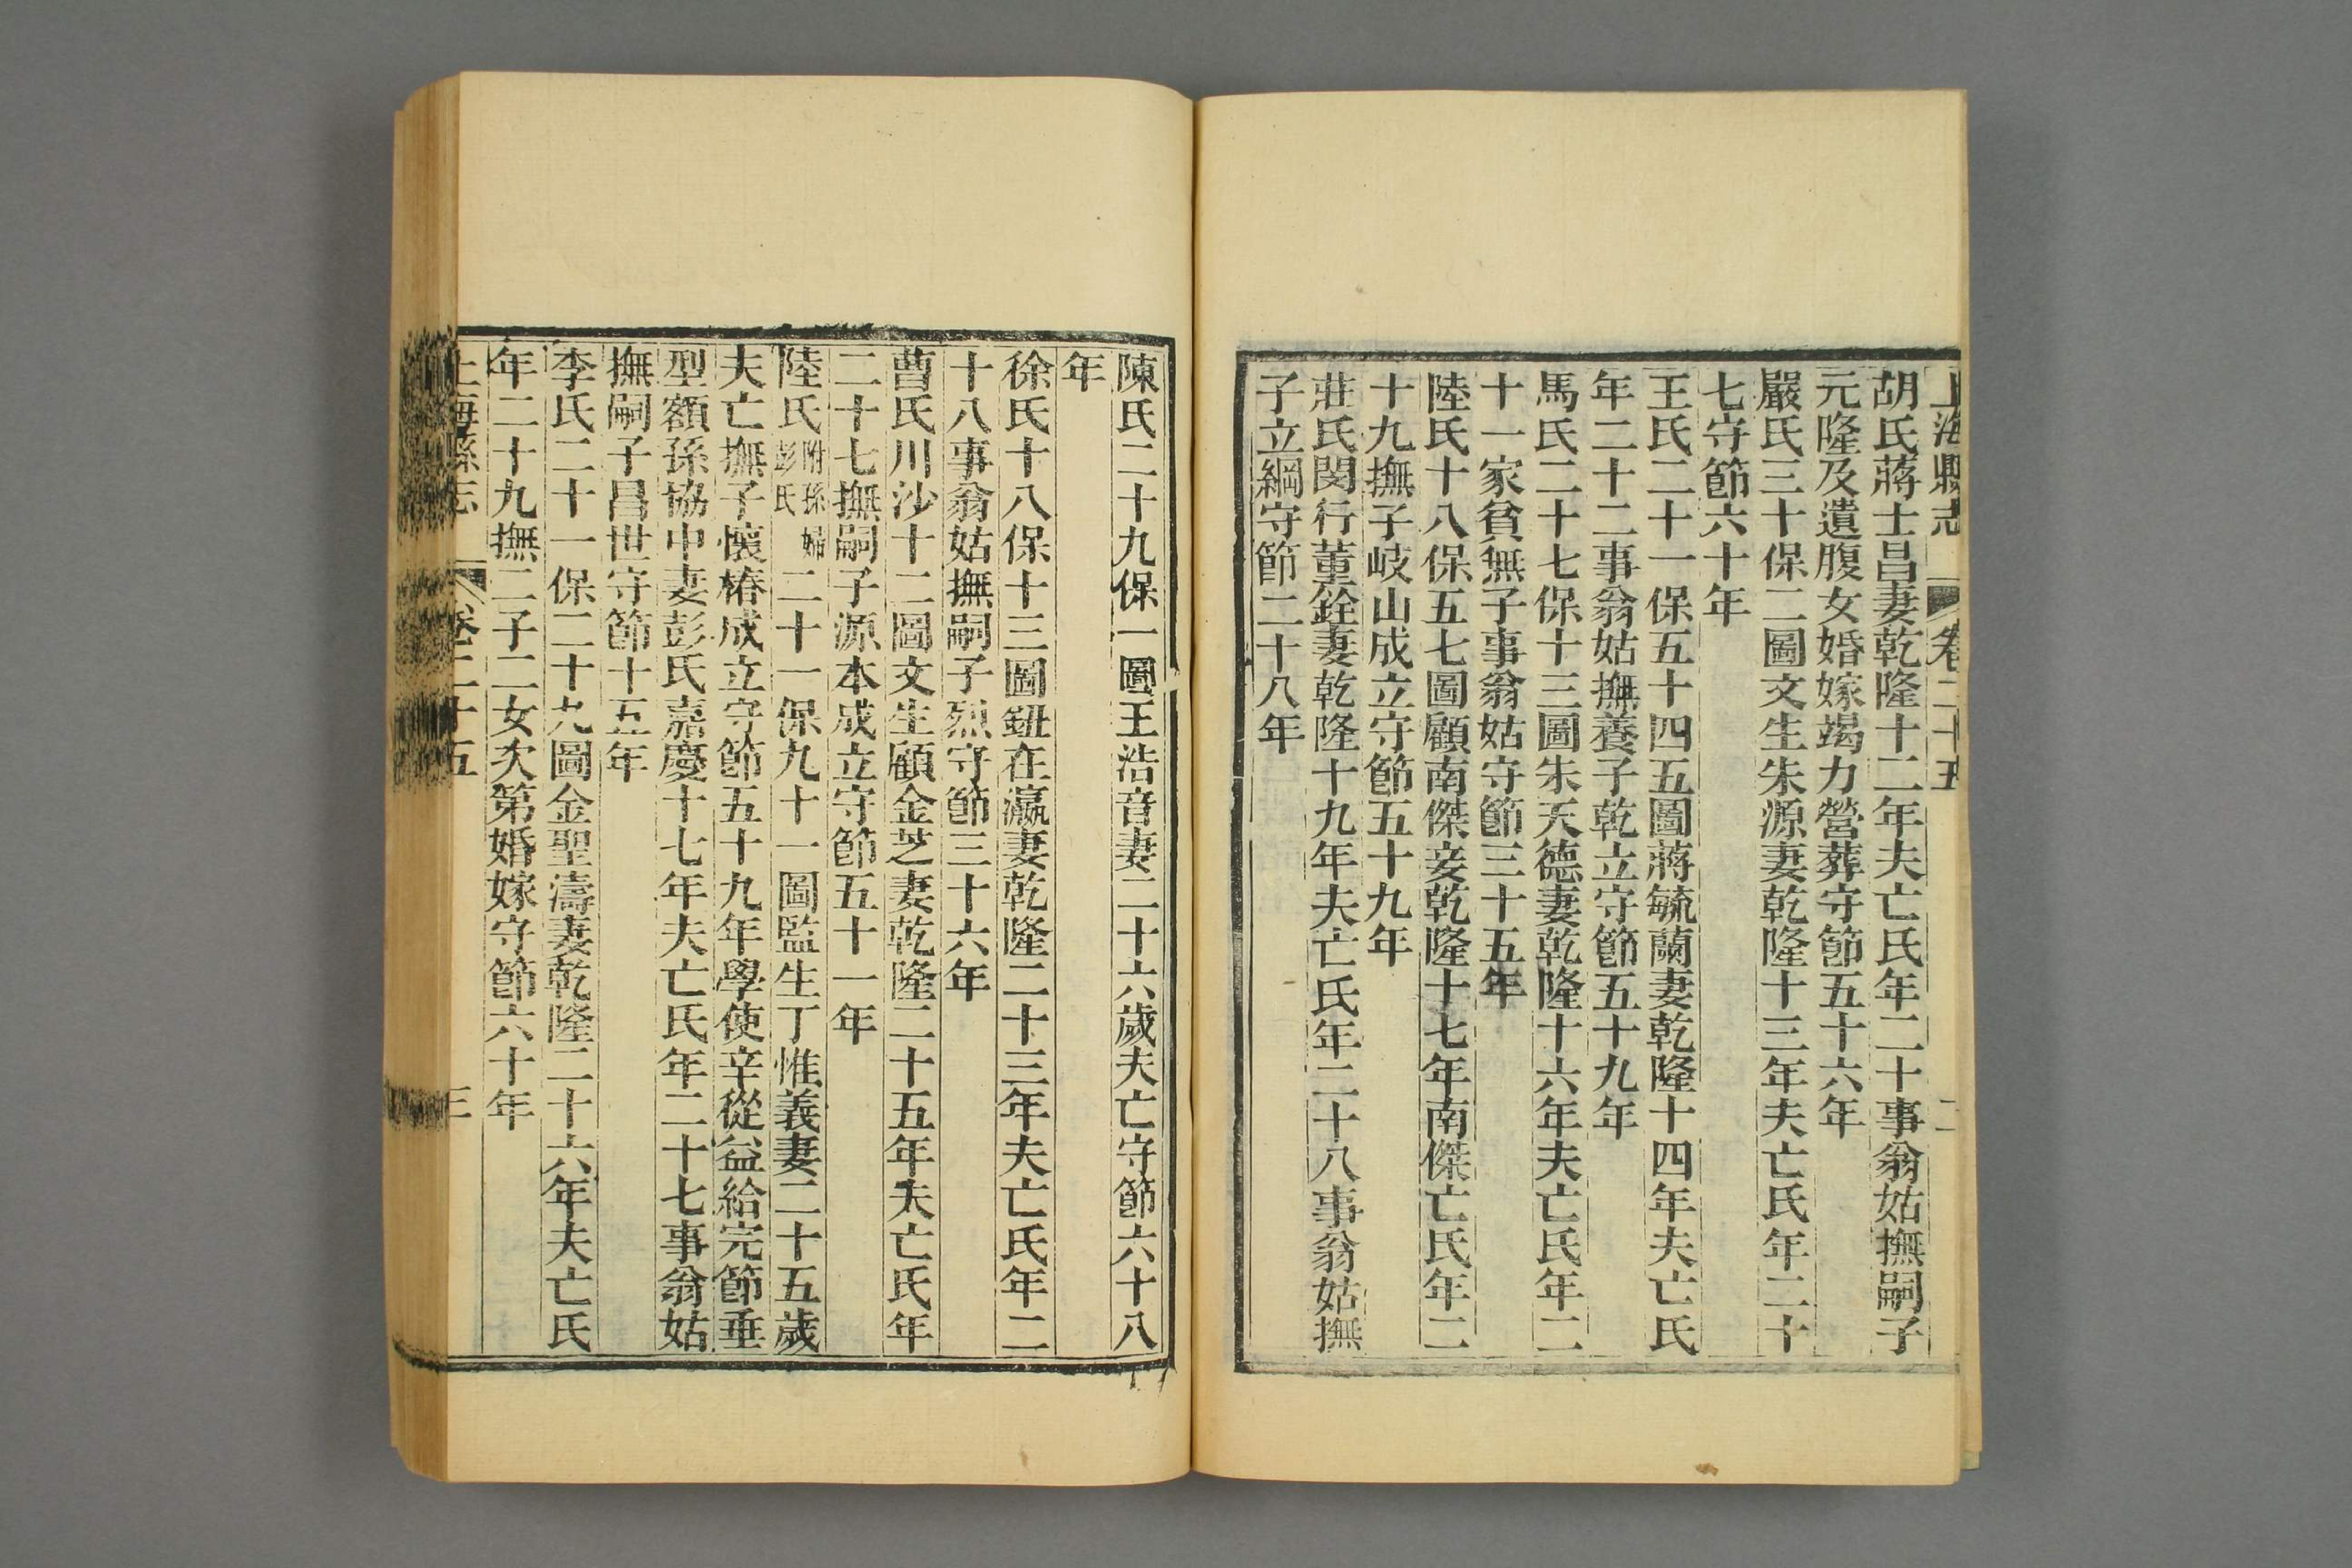 上海縣志 卷二十五 二
胡氏蔣士昌妻乾隆十二年夫亡氏年二十事翁姑撫嗣子
元隆及遺腹女婚嫁竭力營葬守節五十六年
嚴氏三十保二圖文生朱源妻乾隆十三年夫亡氏年二十
七守節六十年
王氏二十一保五十四五圖蔣毓蘭妻乾隆十四年夫亡氏
年二十二事翁姑撫養子乾立守節五十九年
馬氏二十七保十三圖朱天德妻乾隆十六年夫亡氏年二
十一家貧無子事翁姑守節三十五年
陸氏十八保五七圖顧南傑妾乾隆十七年南傑亡氏年二
十九撫子岐山成立守節五十九年
莊氏閔行董銓妻乾隆十九年夫亡氏年二十八事翁姑撫
子立綱守節二十八年
陳氏二十九保一圖王浩音妻二十六歲夫亡守節六十八
年
徐氏十八保十三圖鈕在瀛妻乾隆二十三年夫亡氏年二
十八事翁姑撫嗣子烈守節三十六年
曹氏川沙十二圖文生顧金芝妻乾隆二十五年夫亡氏年
二十七撫嗣子源本成立守節五十一年
陸氏附孫婦彭氏二十一保九十一圖監生丁惟義妻二十五歲
夫亡撫子懷椿成立守節五十九年學使辛從益給完節垂
型額孫協中妻彭氏嘉慶十七年夫亡氏年二十七事翁姑
撫嗣子昌世守節十五年
李氏二十一保二十九圖金聖濤妻乾隆二十六年夫亡氏
年二十九撫二子二女次第婚嫁守節六十年
上海縣志 卷二十五 三